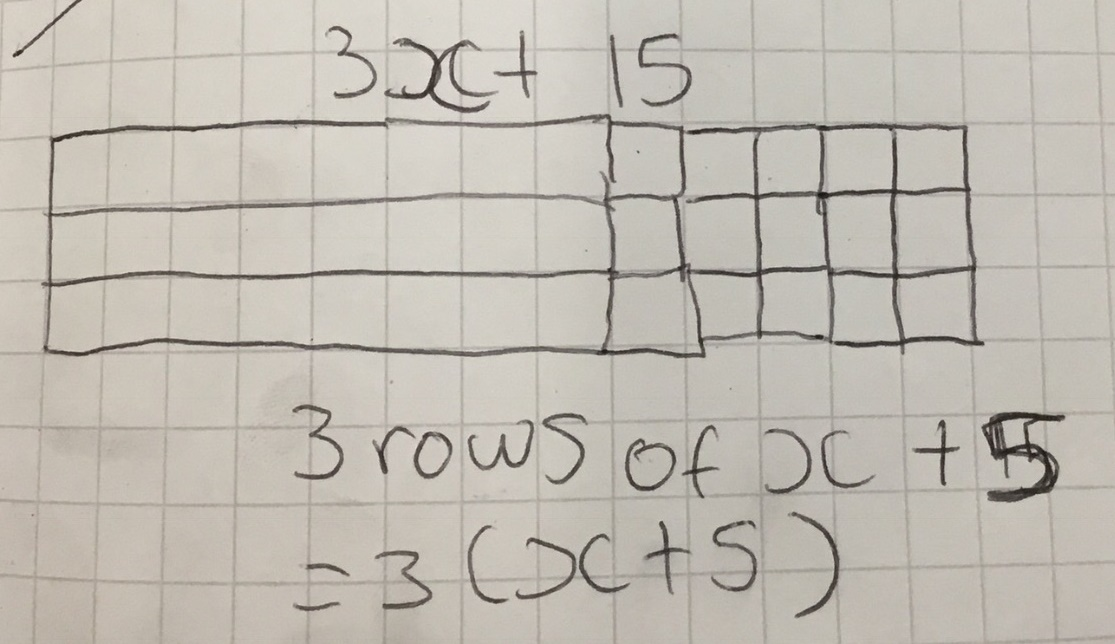 3x + 15
3 rows of x + 5
= 3 (x + 5)